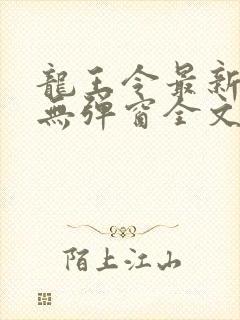 龍王令最新
無彈窗全文
陌上江山